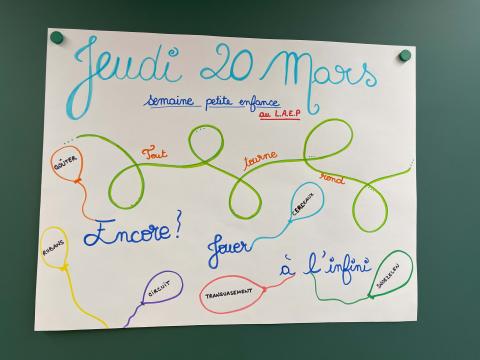 Jeudi 20 Mars
semaine petite enfance
au L.A.E.P
Tout tourne rond
GOÛTER
CERCEAUX
Encore !
Jouer
à l'infini
RUBANS
CIRCUIT
TRANSVASEMENT
SNOEZELEN